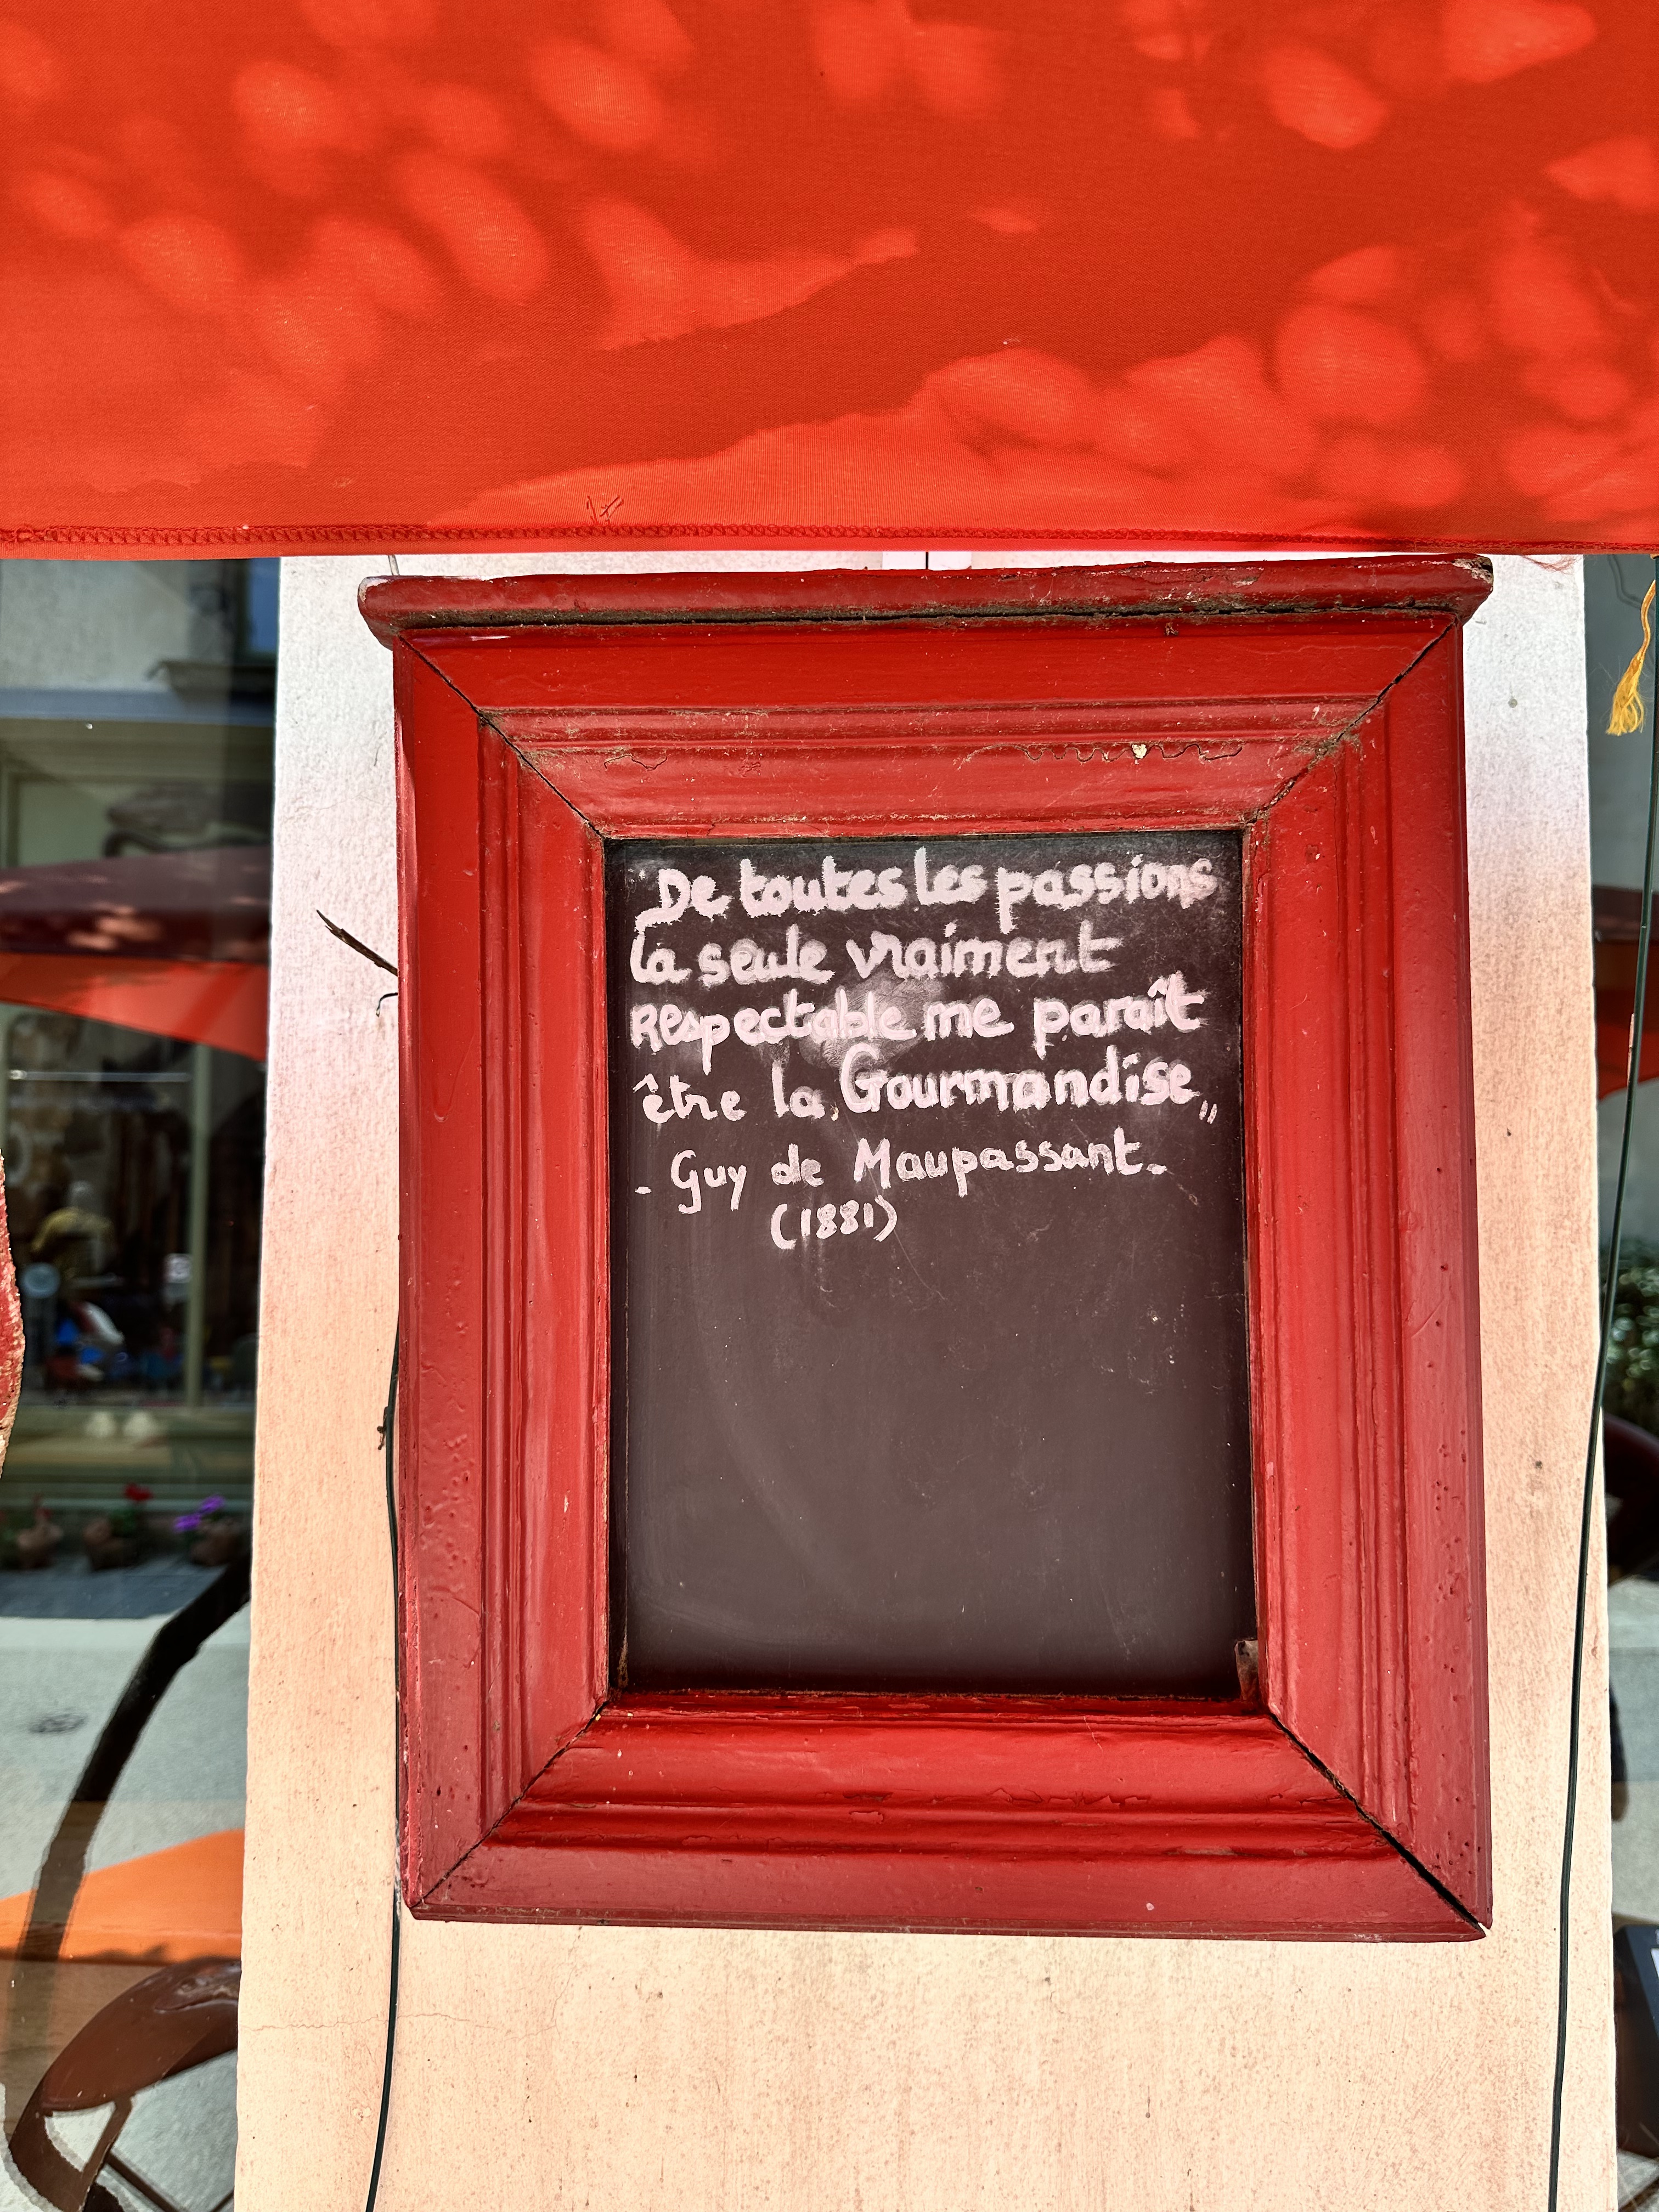 De toutes les passions
la seule vraiment
respectable me paraît
être la Gourmandise "
- Guy de Maupassant -
(1881)